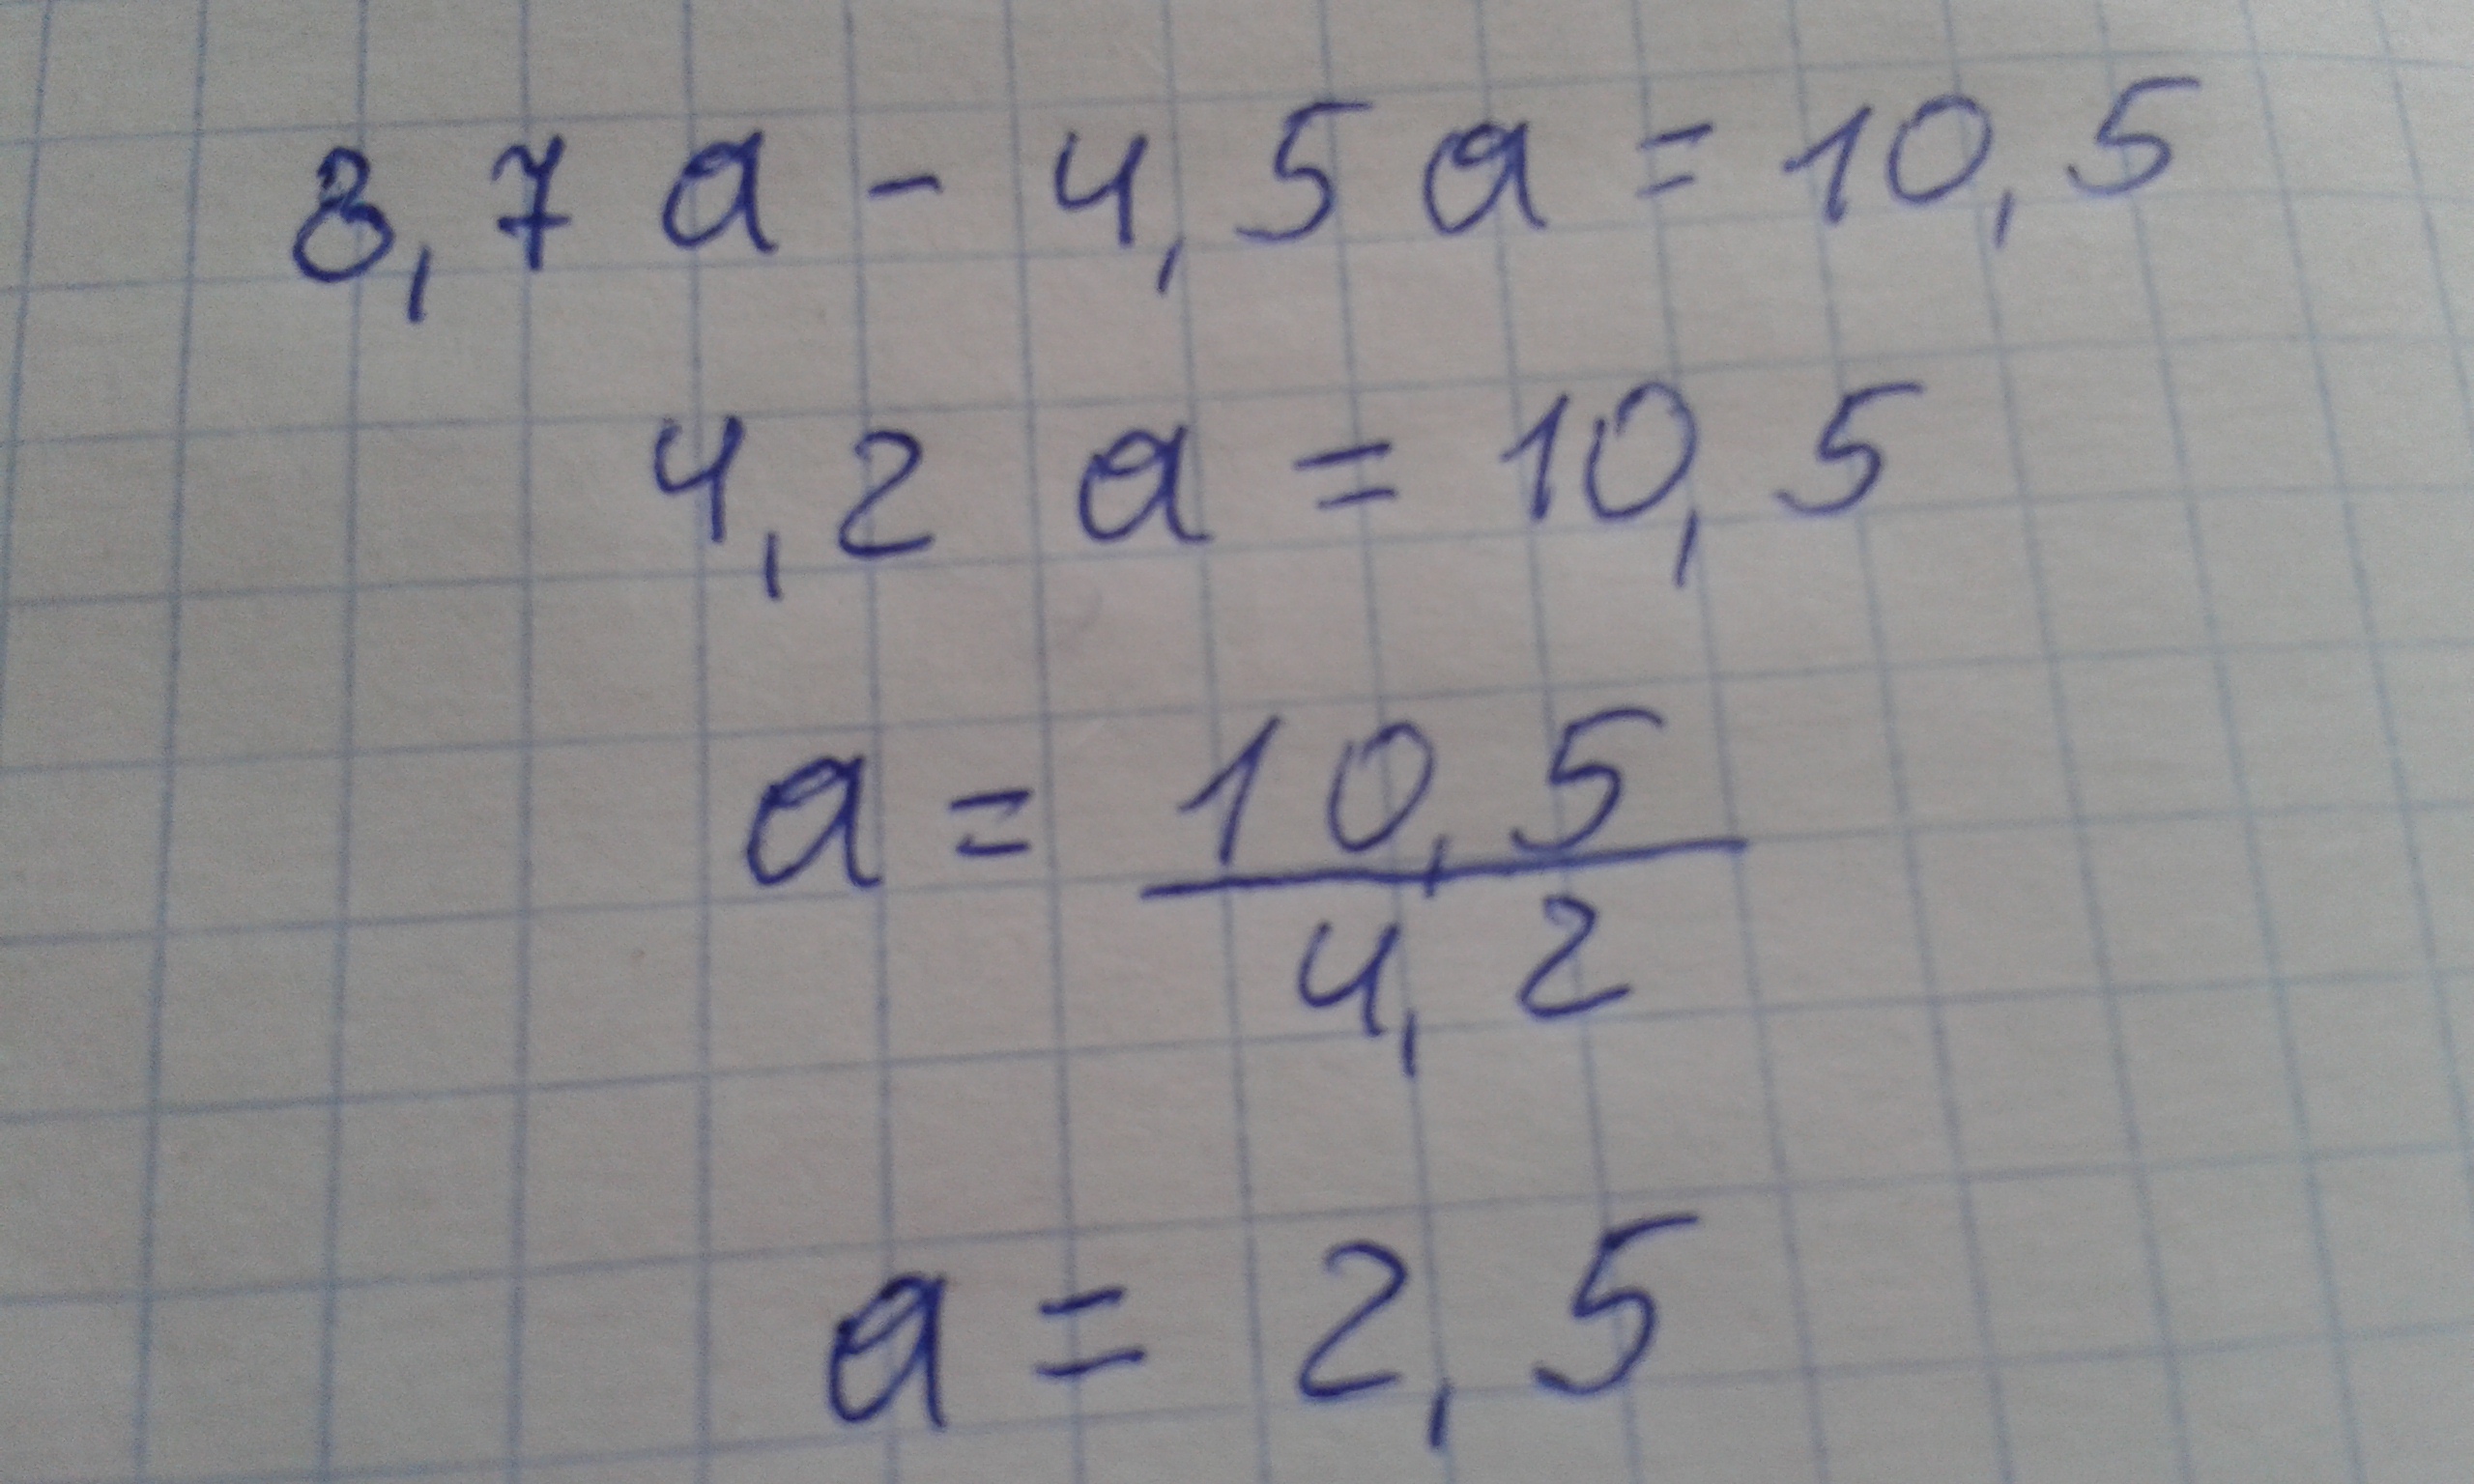 8,7a - 4,5a = 10,5
4,2a = 10,5
a = 10,5 / 4,2
a = 2,5